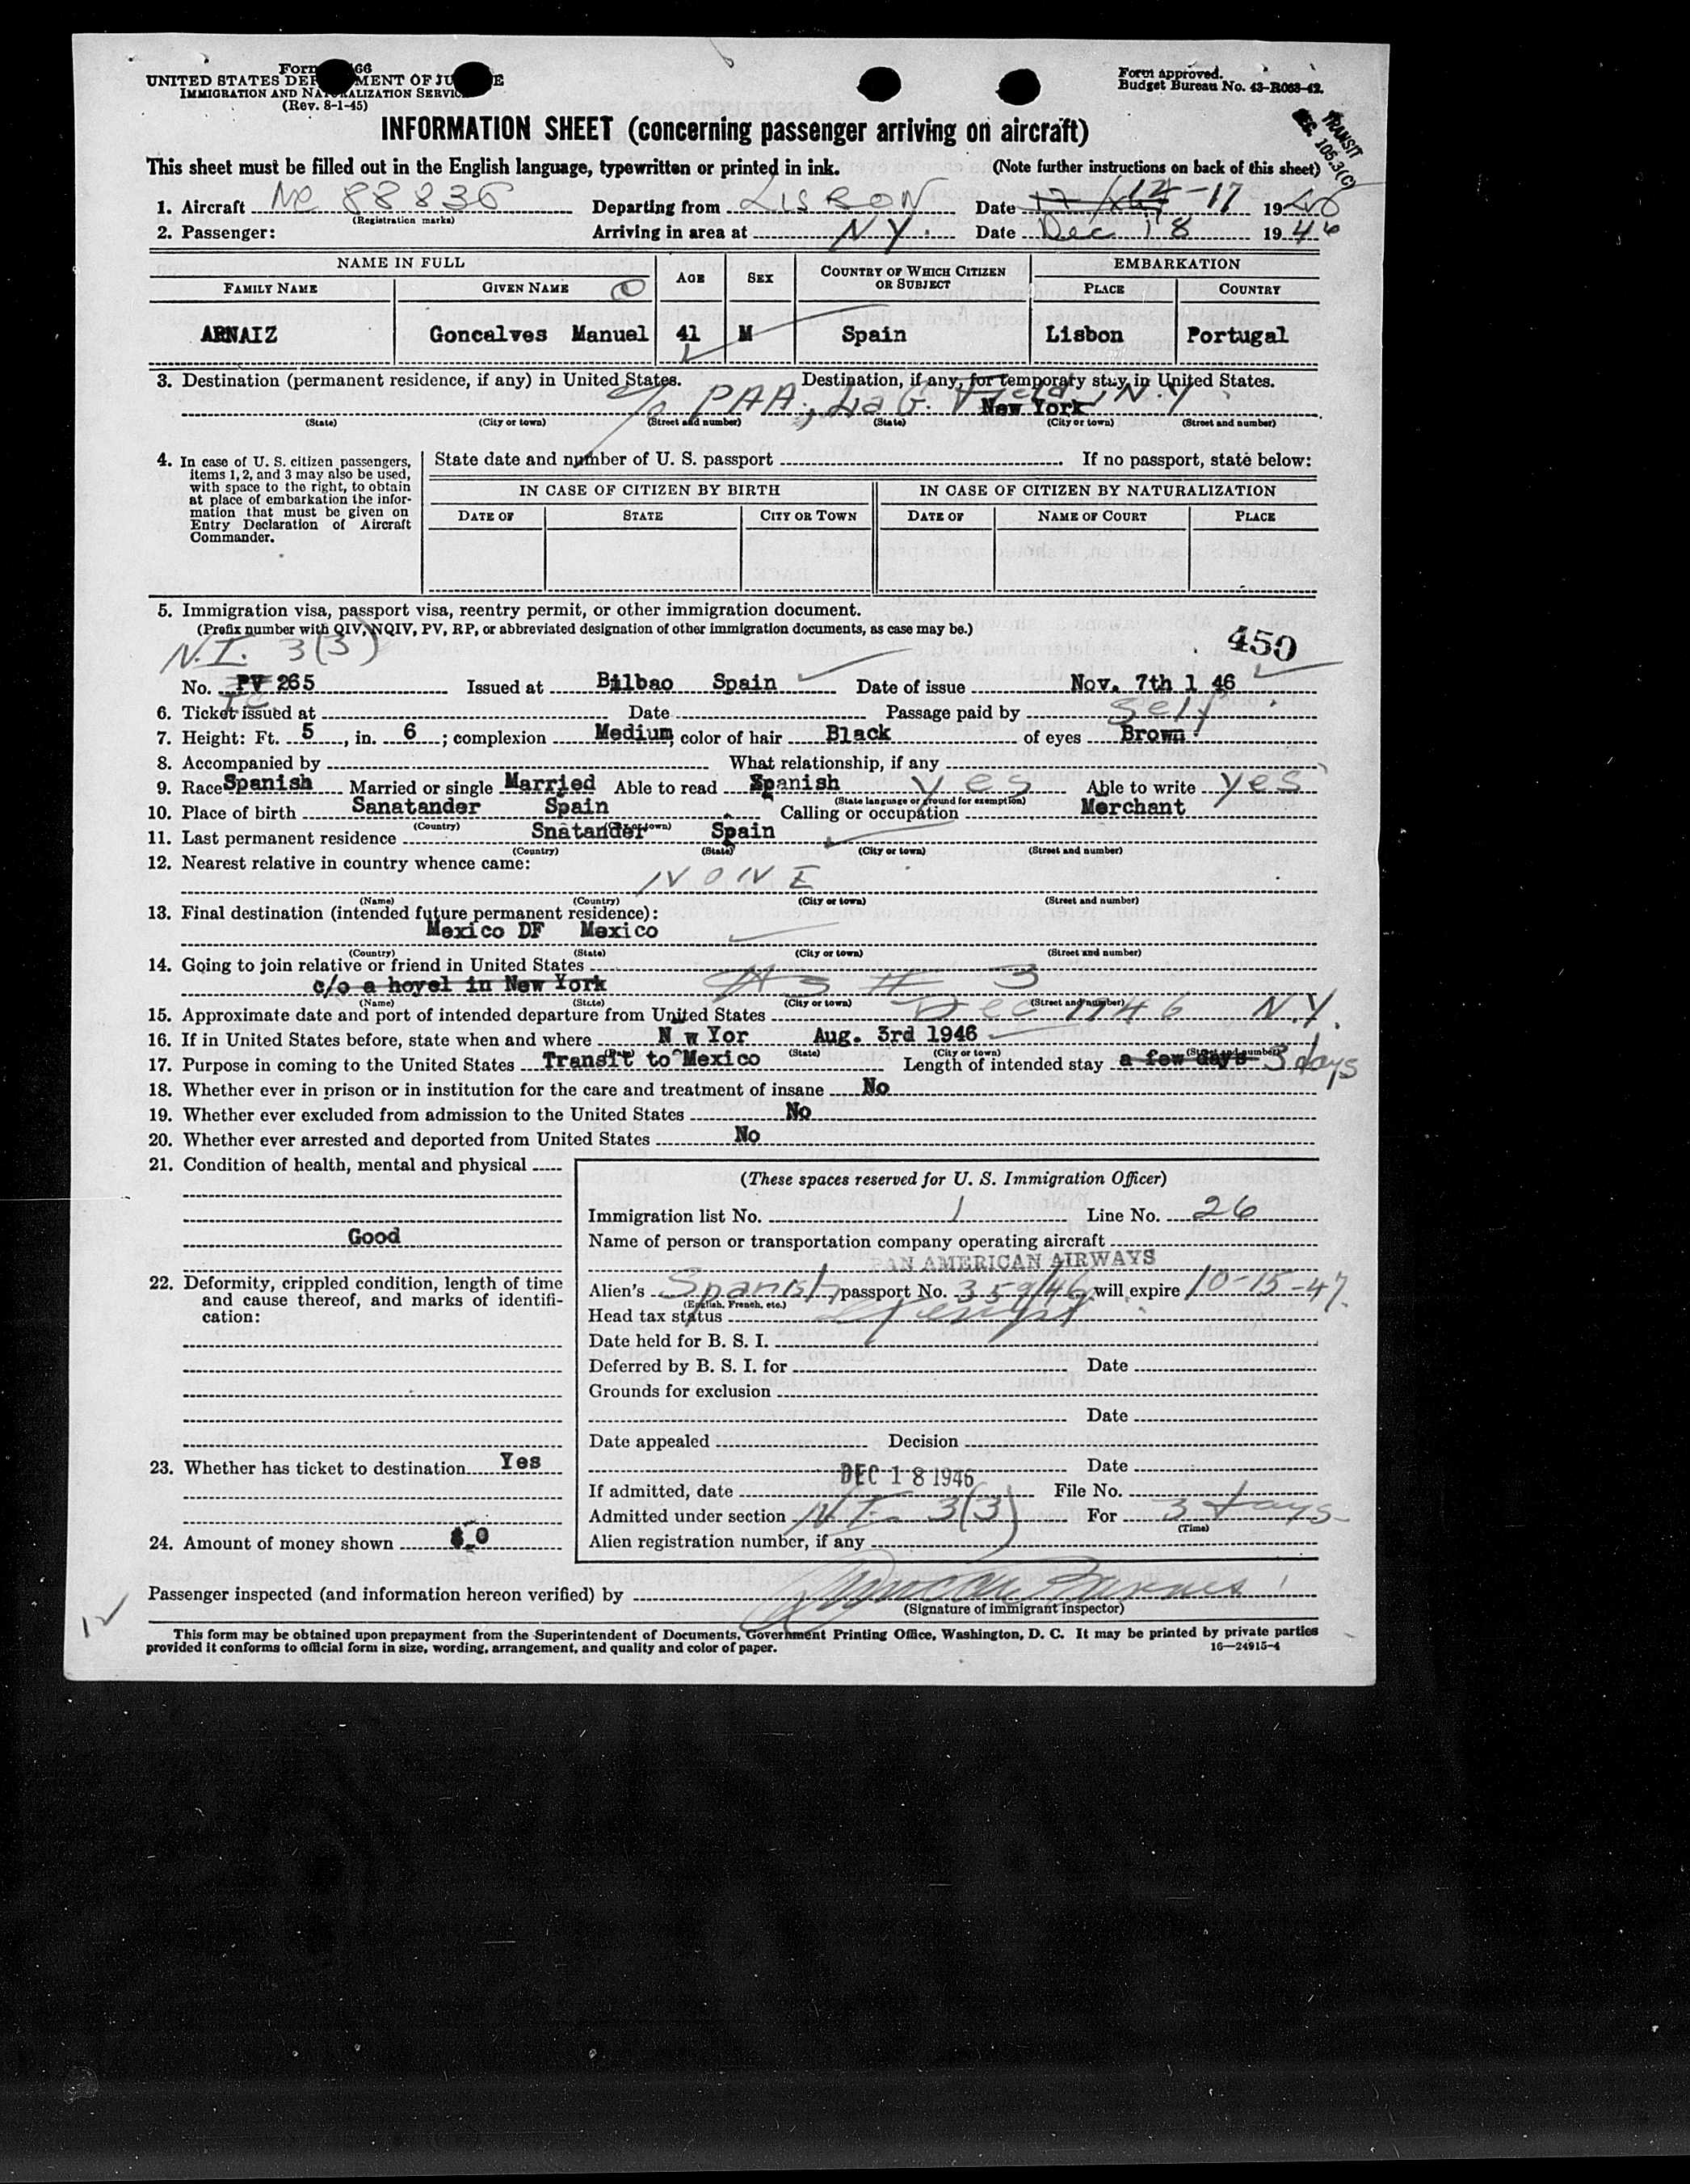 Form 66
UNITED STATES DEP MENT OF JU E
IMMIGRATION AND NATURALIZATION SERVIC
(Rev. 8-1-45)
Form approved.
Budget Bureau No. 43-R063-42.
TRANSIT
SEC. 105.3(C)
INFORMATION SHEET (concerning passenger arriving on aircraft)
This sheet must be filled out in the English language, typewritten or printed in ink. (Note further instructions on back of this sheet)
1. Aircraft NC 88836 Departing from LISBON Date 12-17 1946
(Registration marks)
2. Passenger: Arriving in area at N.Y. Date Dec 18 1946
NAME IN FULL AGE SEX COUNTRY OF WHICH CITIZEN OR SUBJECT EMBARKATION
FAMILY NAME GIVEN NAME PLACE COUNTRY
ARNAIZ Goncalves Manuel 41 M Spain Lisbon Portugal
3. Destination (permanent residence, if any) in United States. Destination, if any, for temporary stay in United States.
c/o PAA, La G. Field, N.Y.
New York
(State) (City or town) (Street and number) (State) (City or town) (Street and number)
4. In case of U. S. citizen passengers, items 1, 2, and 3 may also be used, with space to the right, to obtain at place of embarkation the information that must be given on Entry Declaration of Aircraft Commander.
State date and number of U. S. passport If no passport, state below:
IN CASE OF CITIZEN BY BIRTH IN CASE OF CITIZEN BY NATURALIZATION
DATE OF STATE CITY OR TOWN DATE OF NAME OF COURT PLACE
5. Immigration visa, passport visa, reentry permit, or other immigration document.
(Prefix number with QIV, NQIV, PV, RP, or abbreviated designation of other immigration documents, as case may be.)
N.I. 3(3)
450
No. PV 265 Issued at Bilbao Spain Date of issue Nov. 7th 1 46
6. Ticket issued at Date Passage paid by Self
7. Height: Ft. 5, in. 6; complexion Medium, color of hair Black of eyes Brown
8. Accompanied by What relationship, if any
9. Race Spanish Married or single Married Able to read Spanish yes Able to write yes
(State language or ground for exemption)
10. Place of birth Sanatander Spain Calling or occupation Merchant
(Country) (City or town)
11. Last permanent residence Snatander Spain
(Country) (State) (City or town) (Street and number)
12. Nearest relative in country whence came:
NONE
(Name) (Country) (City or town) (Street and number)
13. Final destination (intended future permanent residence):
Mexico DF Mexico
(Country) (State) (City or town) (Street and number)
14. Going to join relative or friend in United States
c/o a hoyel in New York # 3
(Name) (State) (City or town) (Street and number)
15. Approximate date and port of intended departure from United States Dec 1946 N.Y.
16. If in United States before, state when and where N w Yor Aug. 3rd 1946
(State) (City or town) (Street and number)
17. Purpose in coming to the United States Transit to Mexico Length of intended stay a few days 3 days
18. Whether ever in prison or in institution for the care and treatment of insane No
19. Whether ever excluded from admission to the United States No
20. Whether ever arrested and deported from United States No
21. Condition of health, mental and physical
Good
22. Deformity, crippled condition, length of time and cause thereof, and marks of identification:
23. Whether has ticket to destination Yes
24. Amount of money shown $ 0
(These spaces reserved for U. S. Immigration Officer)
Immigration list No. 1 Line No. 26
Name of person or transportation company operating aircraft
PAN AMERICAN AIRWAYS
Alien's Spanish passport No. 359/46 will expire 10-15-47.
(English, French, etc.)
Head tax status Exempt
Date held for B. S. I.
Deferred by B. S. I. for Date
Grounds for exclusion
Date
Date appealed Decision
Date
DEC 18 1946
If admitted, date File No.
Admitted under section N.I. 3(3) For 3 days
(Time)
Alien registration number, if any
Passenger inspected (and information hereon verified) by
(Signature of immigrant inspector)
This form may be obtained upon prepayment from the Superintendent of Documents, Government Printing Office, Washington, D. C. It may be printed by private parties
provided it conforms to official form in size, wording, arrangement, and quality and color of paper. 16—24915-4